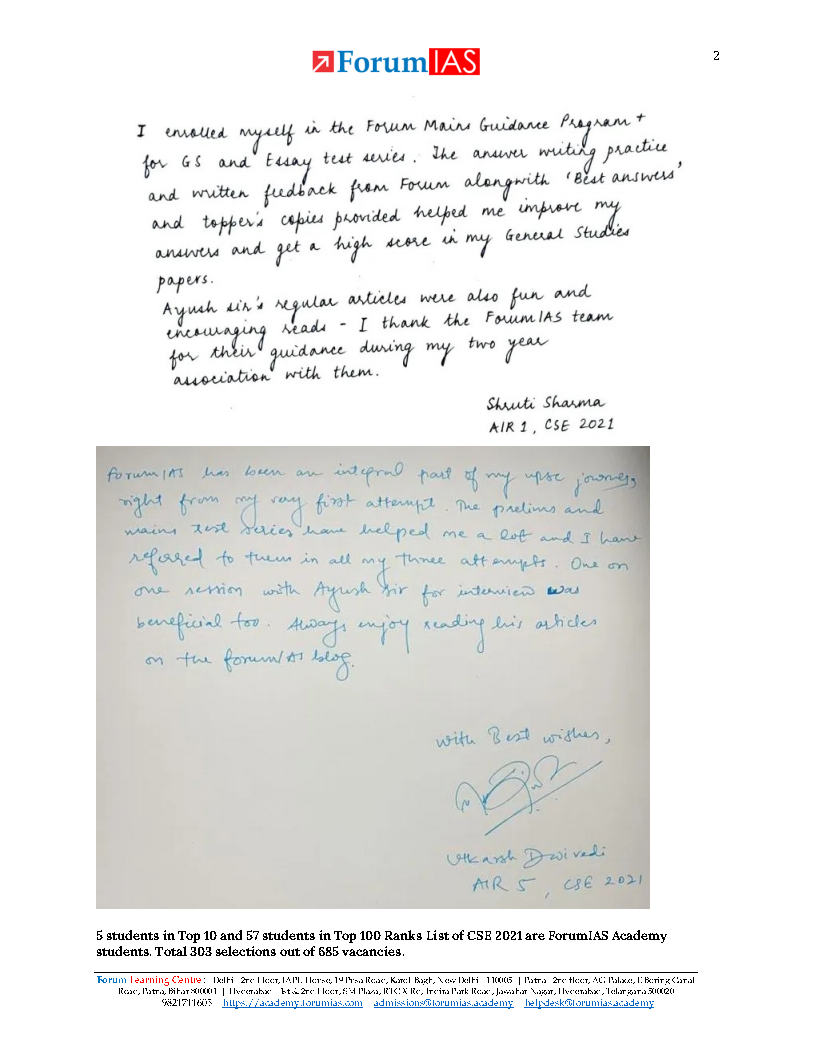 2
ForumIAS
I enrolled myself in the Forum Mains Guidance Program +
for GS and Essay test series. The answer writing practice
and written feedback from Forum alongwith 'Best answers'
and topper's copies provided helped me improve my
answers and get a high score in my General Studies
papers.
Ayush sir's regular articles were also fun and
encouraging reads - I thank the ForumIAS team
for their guidance during my two year
association with them.
Shruti Sharma
AIR 1, CSE 2021
ForumIAS has been an integral part of my upsc journey,
right from my very first attempt. The prelims and
mains test series have helped me a lot and I have
referred to them in all my three attempts. One on
one session with Ayush Sir for interview was
beneficial too. Always enjoy reading his articles
on the forumIAS blog.
with Best wishes,
Utkarsh Dwivedi
AIR 5, CSE 2021
5 students in Top 10 and 57 students in Top 100 Ranks List of CSE 2021 are ForumIAS Academy
students. Total 303 selections out of 685 vacancies.
Forum Learning Centre: Delhi - 2nd Floor, IAPL House, 19 Pusa Road, Karol Bagh, New Delhi - 110005 | Patna - 2nd floor, AG Palace, E Boring Canal
Road, Patna, Bihar 800001 | Hyderabad - 1st & 2nd Floor, SM Plaza, RTC X Rd, Indira Park Road, Jawahar Nagar, Hyderabad, Telangana 500020
9821711605 https://academy.forumias.com admissions@forumias.academy helpdesk@forumias.academy